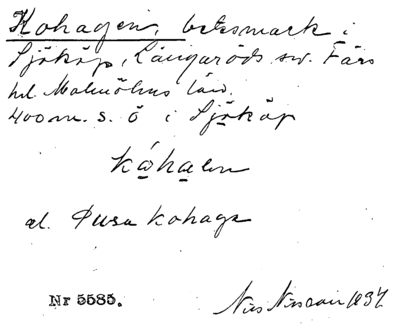 Kohagen, betesmark i
Sjököp, Långaröds sn. Färs
hd. Malmöhus län.
400 m. s. ö i Sjököp
kohaen
al. Pusa kohage
Nr 5585.
Nils Nilsson 1934